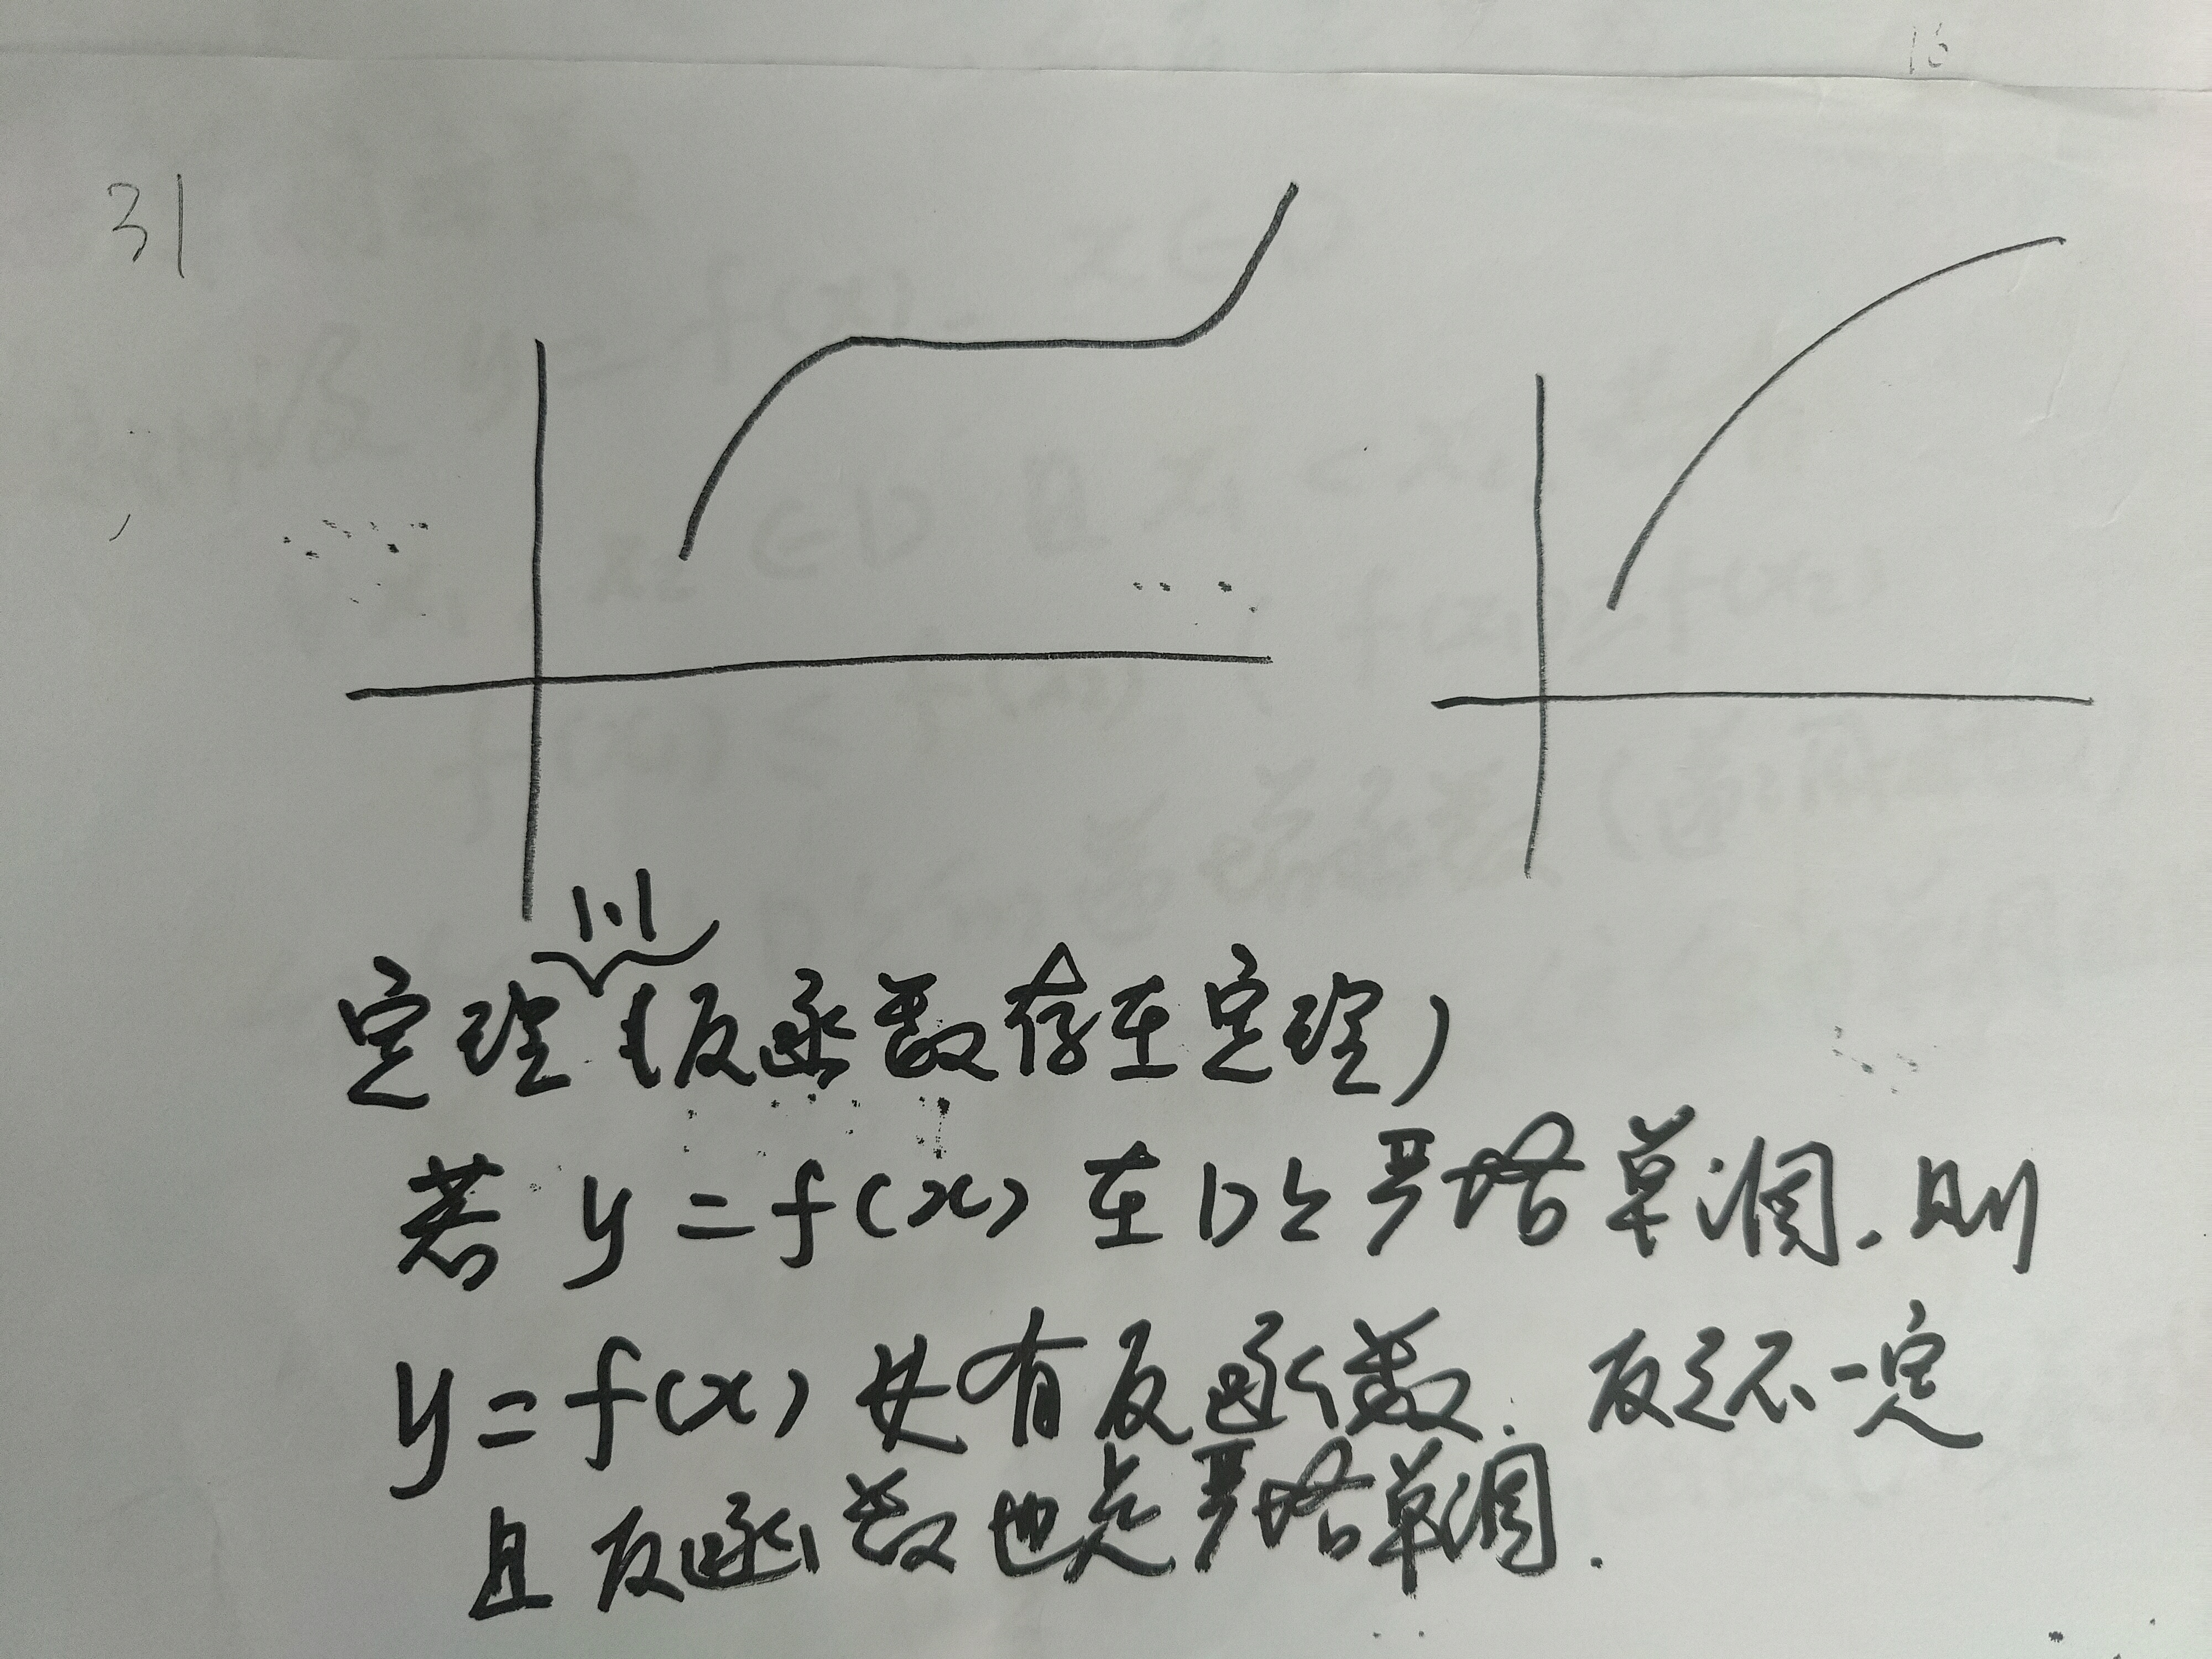 16
31
1.1
定理 (反函数存在定理)
若 y = f(x) 在 D 上严格单调. 则
y = f(x) 必有反函数. 反之不一定
且反函数也是严格单调.